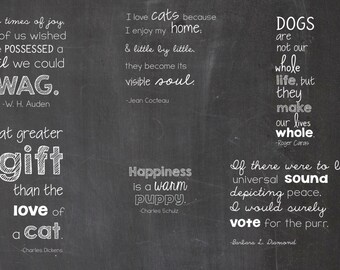 times of joy,
of us wished
POSSESSED a
we could
WAG.
-W. H. Auden
I love cats because
I enjoy my home;
& little by little,
they become its
visible soul.
-Jean Cocteau
DOGS
are
not our
whole
life, but
they
make
our lives
whole.
-Roger Caras
at greater
gift
than the
love of
a cat.
-Charles Dickens
Happiness
is a warm
puppy.
-Charles Schulz
If there were to
universal sound
depicting peace,
I would surely
vote for the purr.
Barbara L. Diamond